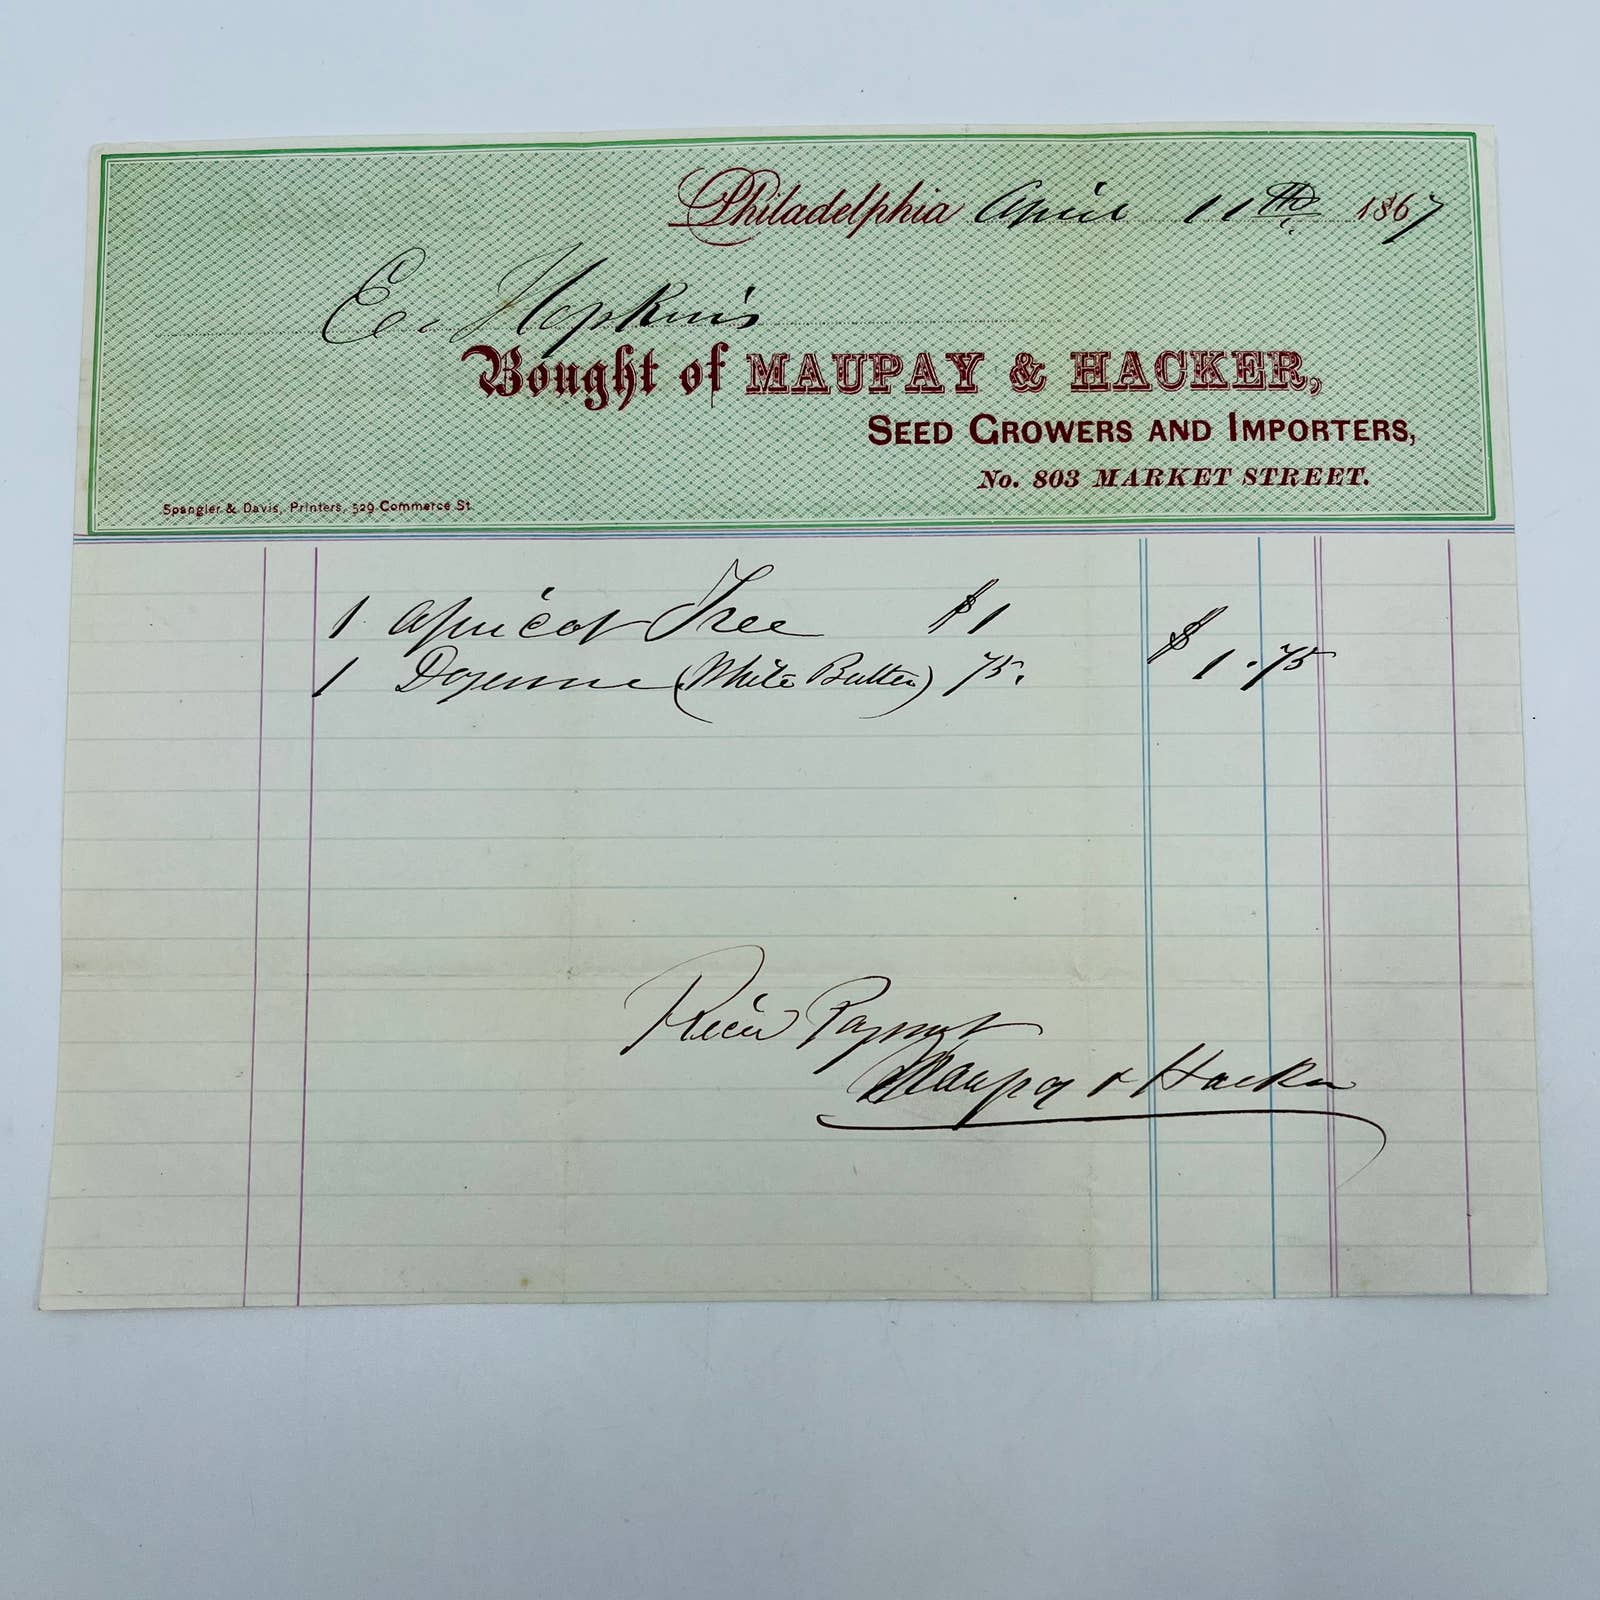 Philadelphia April 11th 1867
E. Hopkins
Bought of MAUPAY & HACKER,
SEED GROWERS AND IMPORTERS,
No. 803 MARKET STREET.
Spangler & Davis, Printers, 529 Commerce St.
1 Apricot Tree $1
1 Doyenne (White Butter) 75. $1.75
Maupay & Hacker